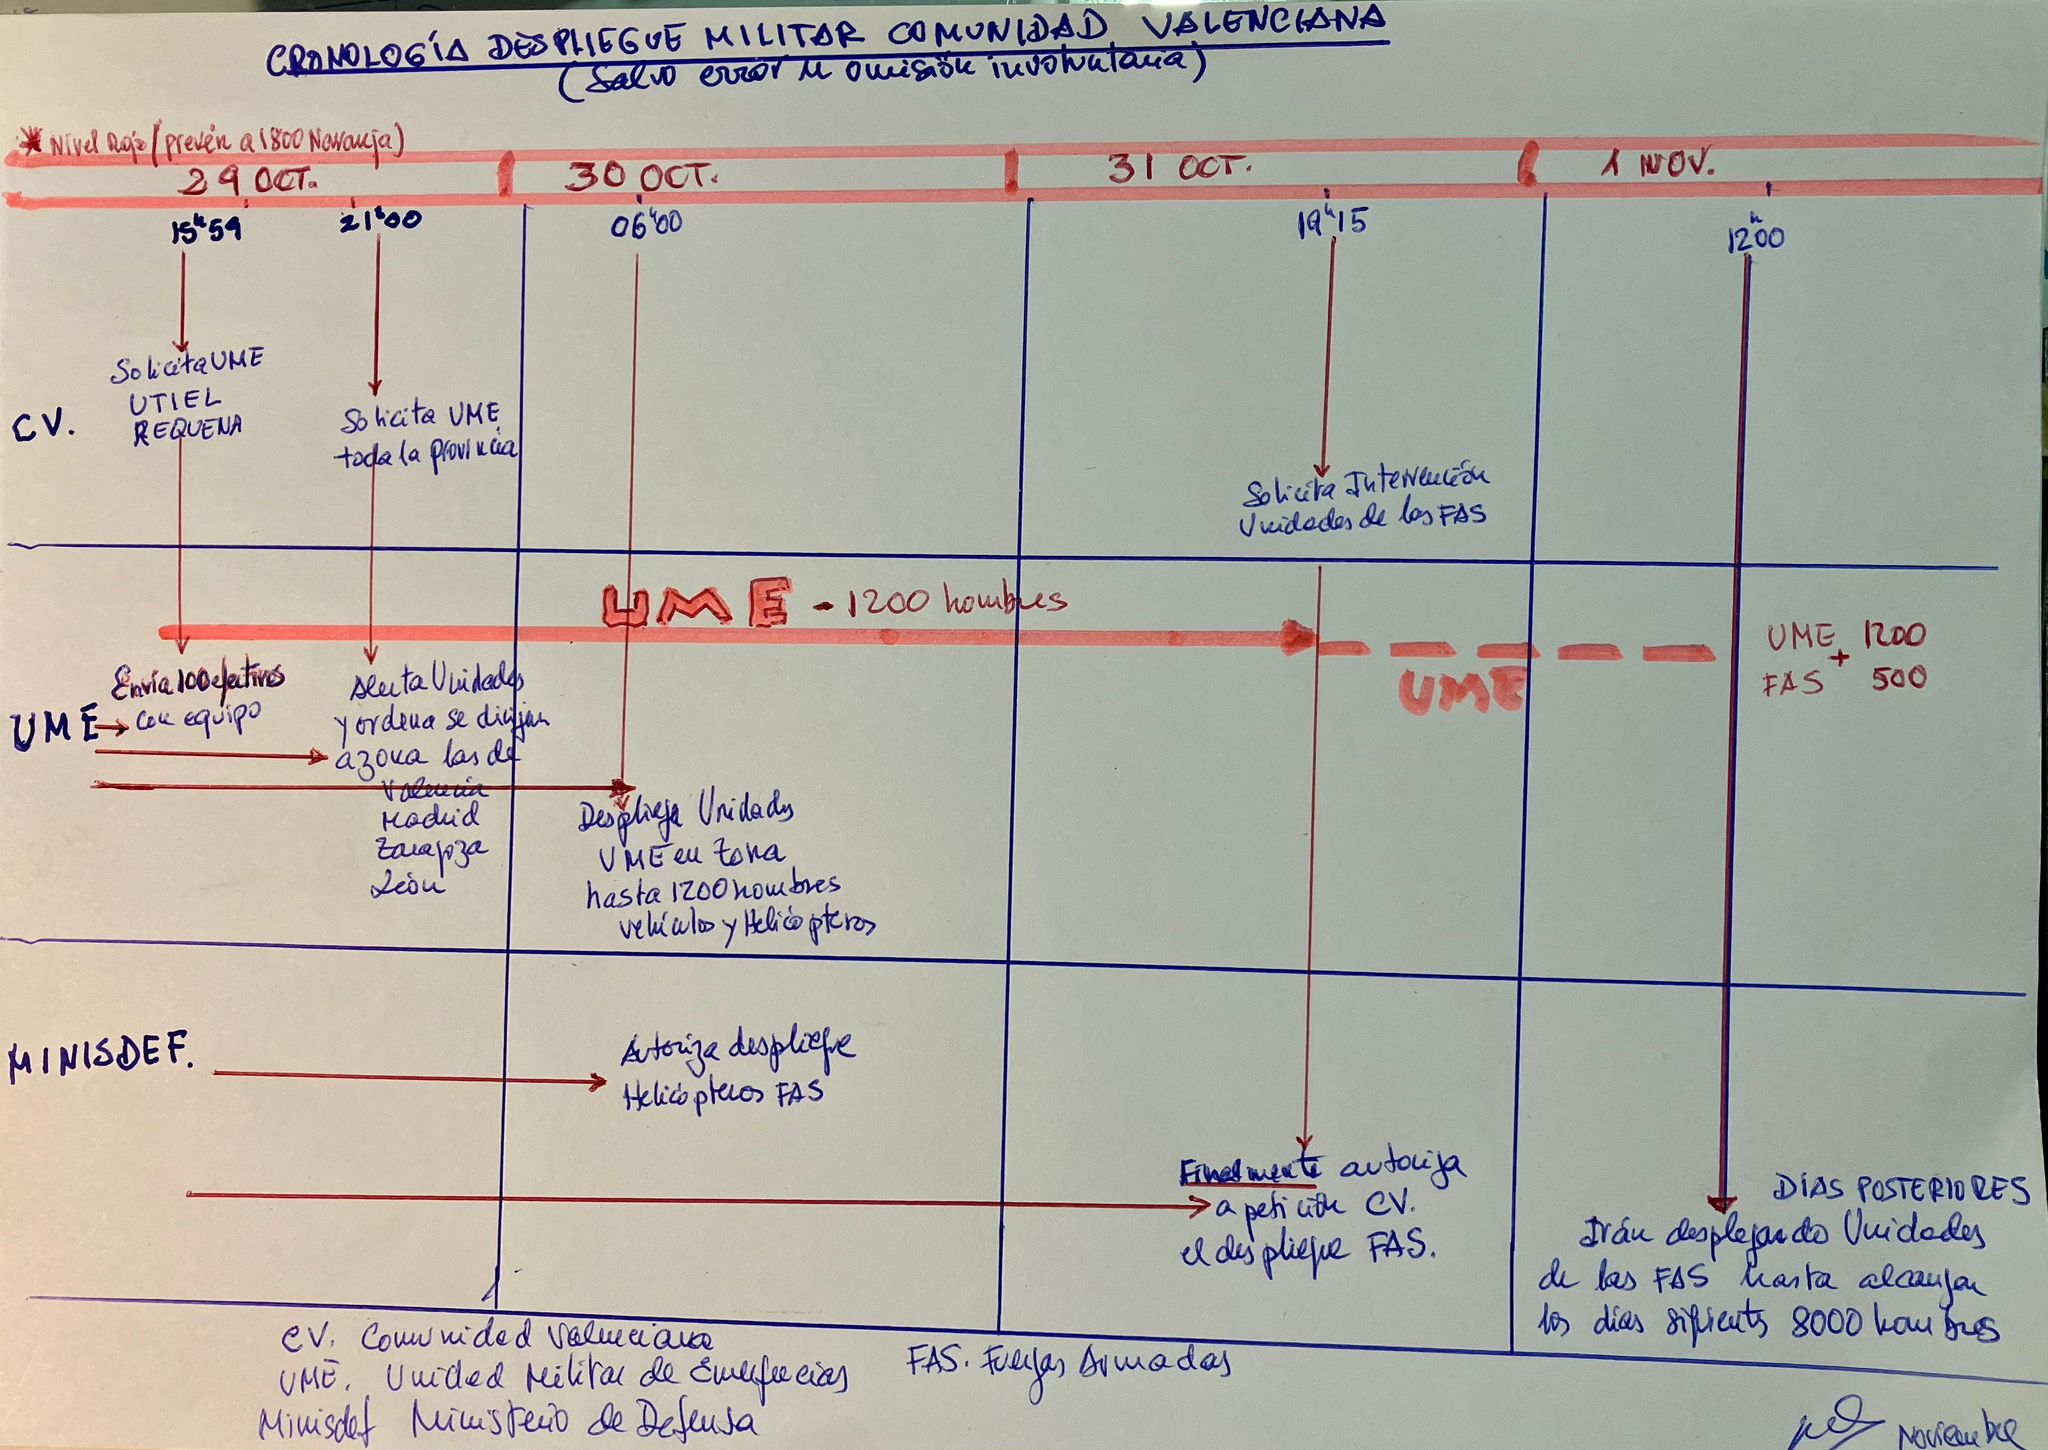 CRONOLOGÍA DESPLIEGUE MILITAR COMUNIDAD VALENCIANA
(Salvo error u omisión involuntaria)
* Nivel Rojo (prevén a 1800 Naranja)
29 OCT.
30 OCT.
31 OCT.
1 NOV.
15h59
21h00
06h00
19h15
12h00
CV.
Solicita UME
UTIEL
REQUENA
Solicita UME
toda la provincia
Solicita Intervención
Unidades de las FAS
UME - 1200 hombres
UME
UME 1200
+
FAS 500
UME
Envía 100 efectivos
con equipo
Alerta Unidades
y ordena se dirijan
a zona las de
Valencia
Madrid
Zaragoza
León
Despliega Unidades
UME en zona
hasta 1200 hombres
vehículos y Helicópteros
MINISDEF.
Autoriza despliegue
Helicópteros FAS
Finalmente autoriza
a petición CV.
el despliegue FAS.
DIAS POSTERIORES
Irán desplegando Unidades
de las FAS hasta alcanzar
los días siguientes 8000 hombres
CV. Comunidad Valenciana
UME. Unidad Militar de Emergencias
Minisdef Ministerio de Defensa
FAS. Fuerzas Armadas
Noviembre